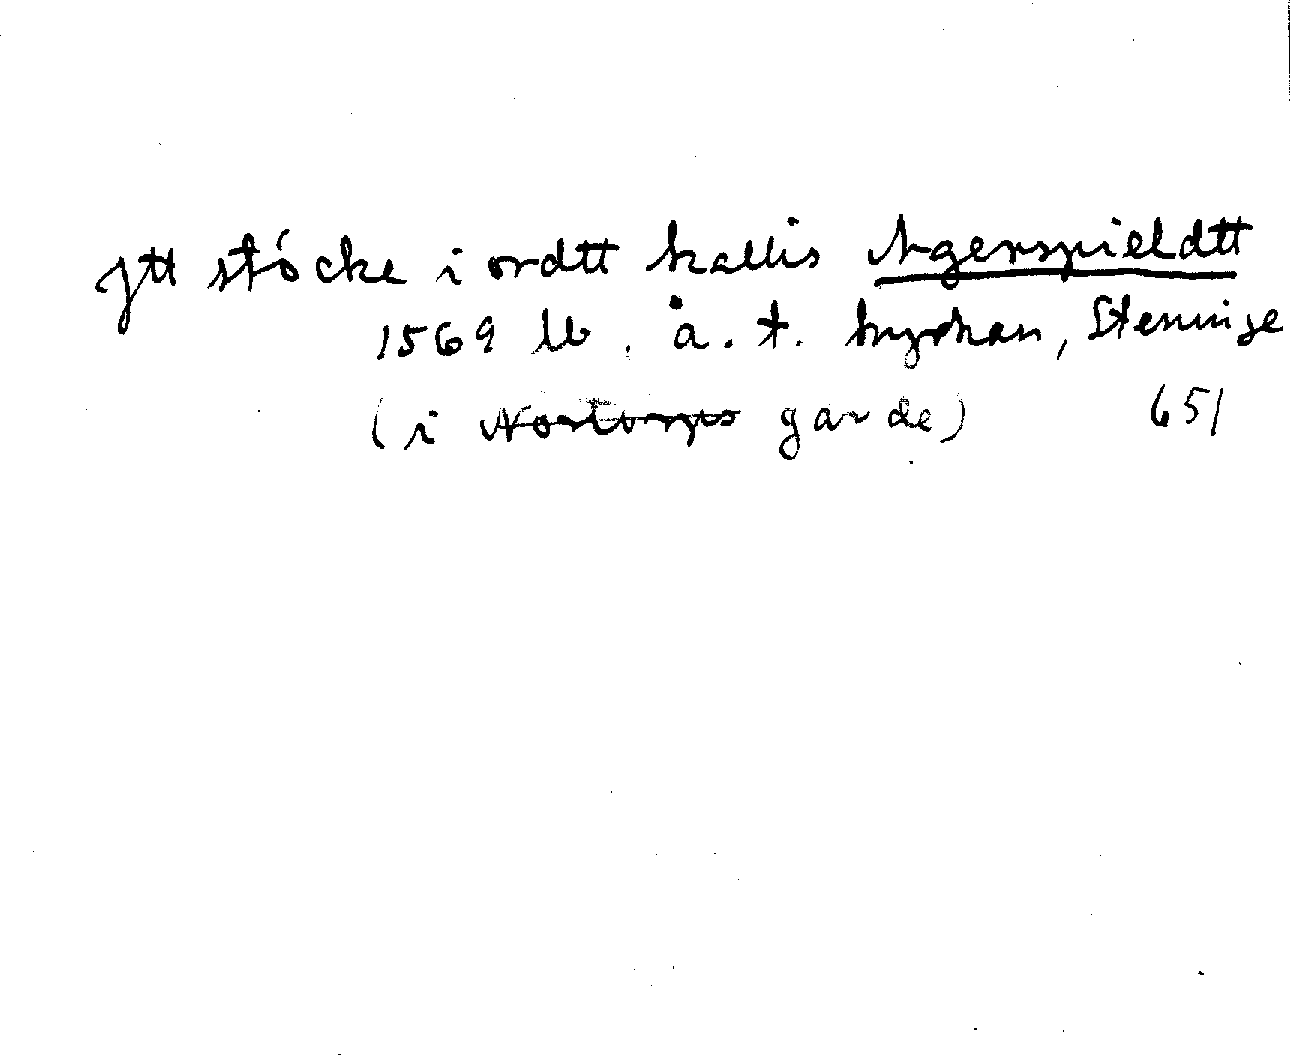 Jtt stócke i ordtt kallis Agerspieldtt
1569 lb. å. t. kyrkan, Steninge
(i garde) 651